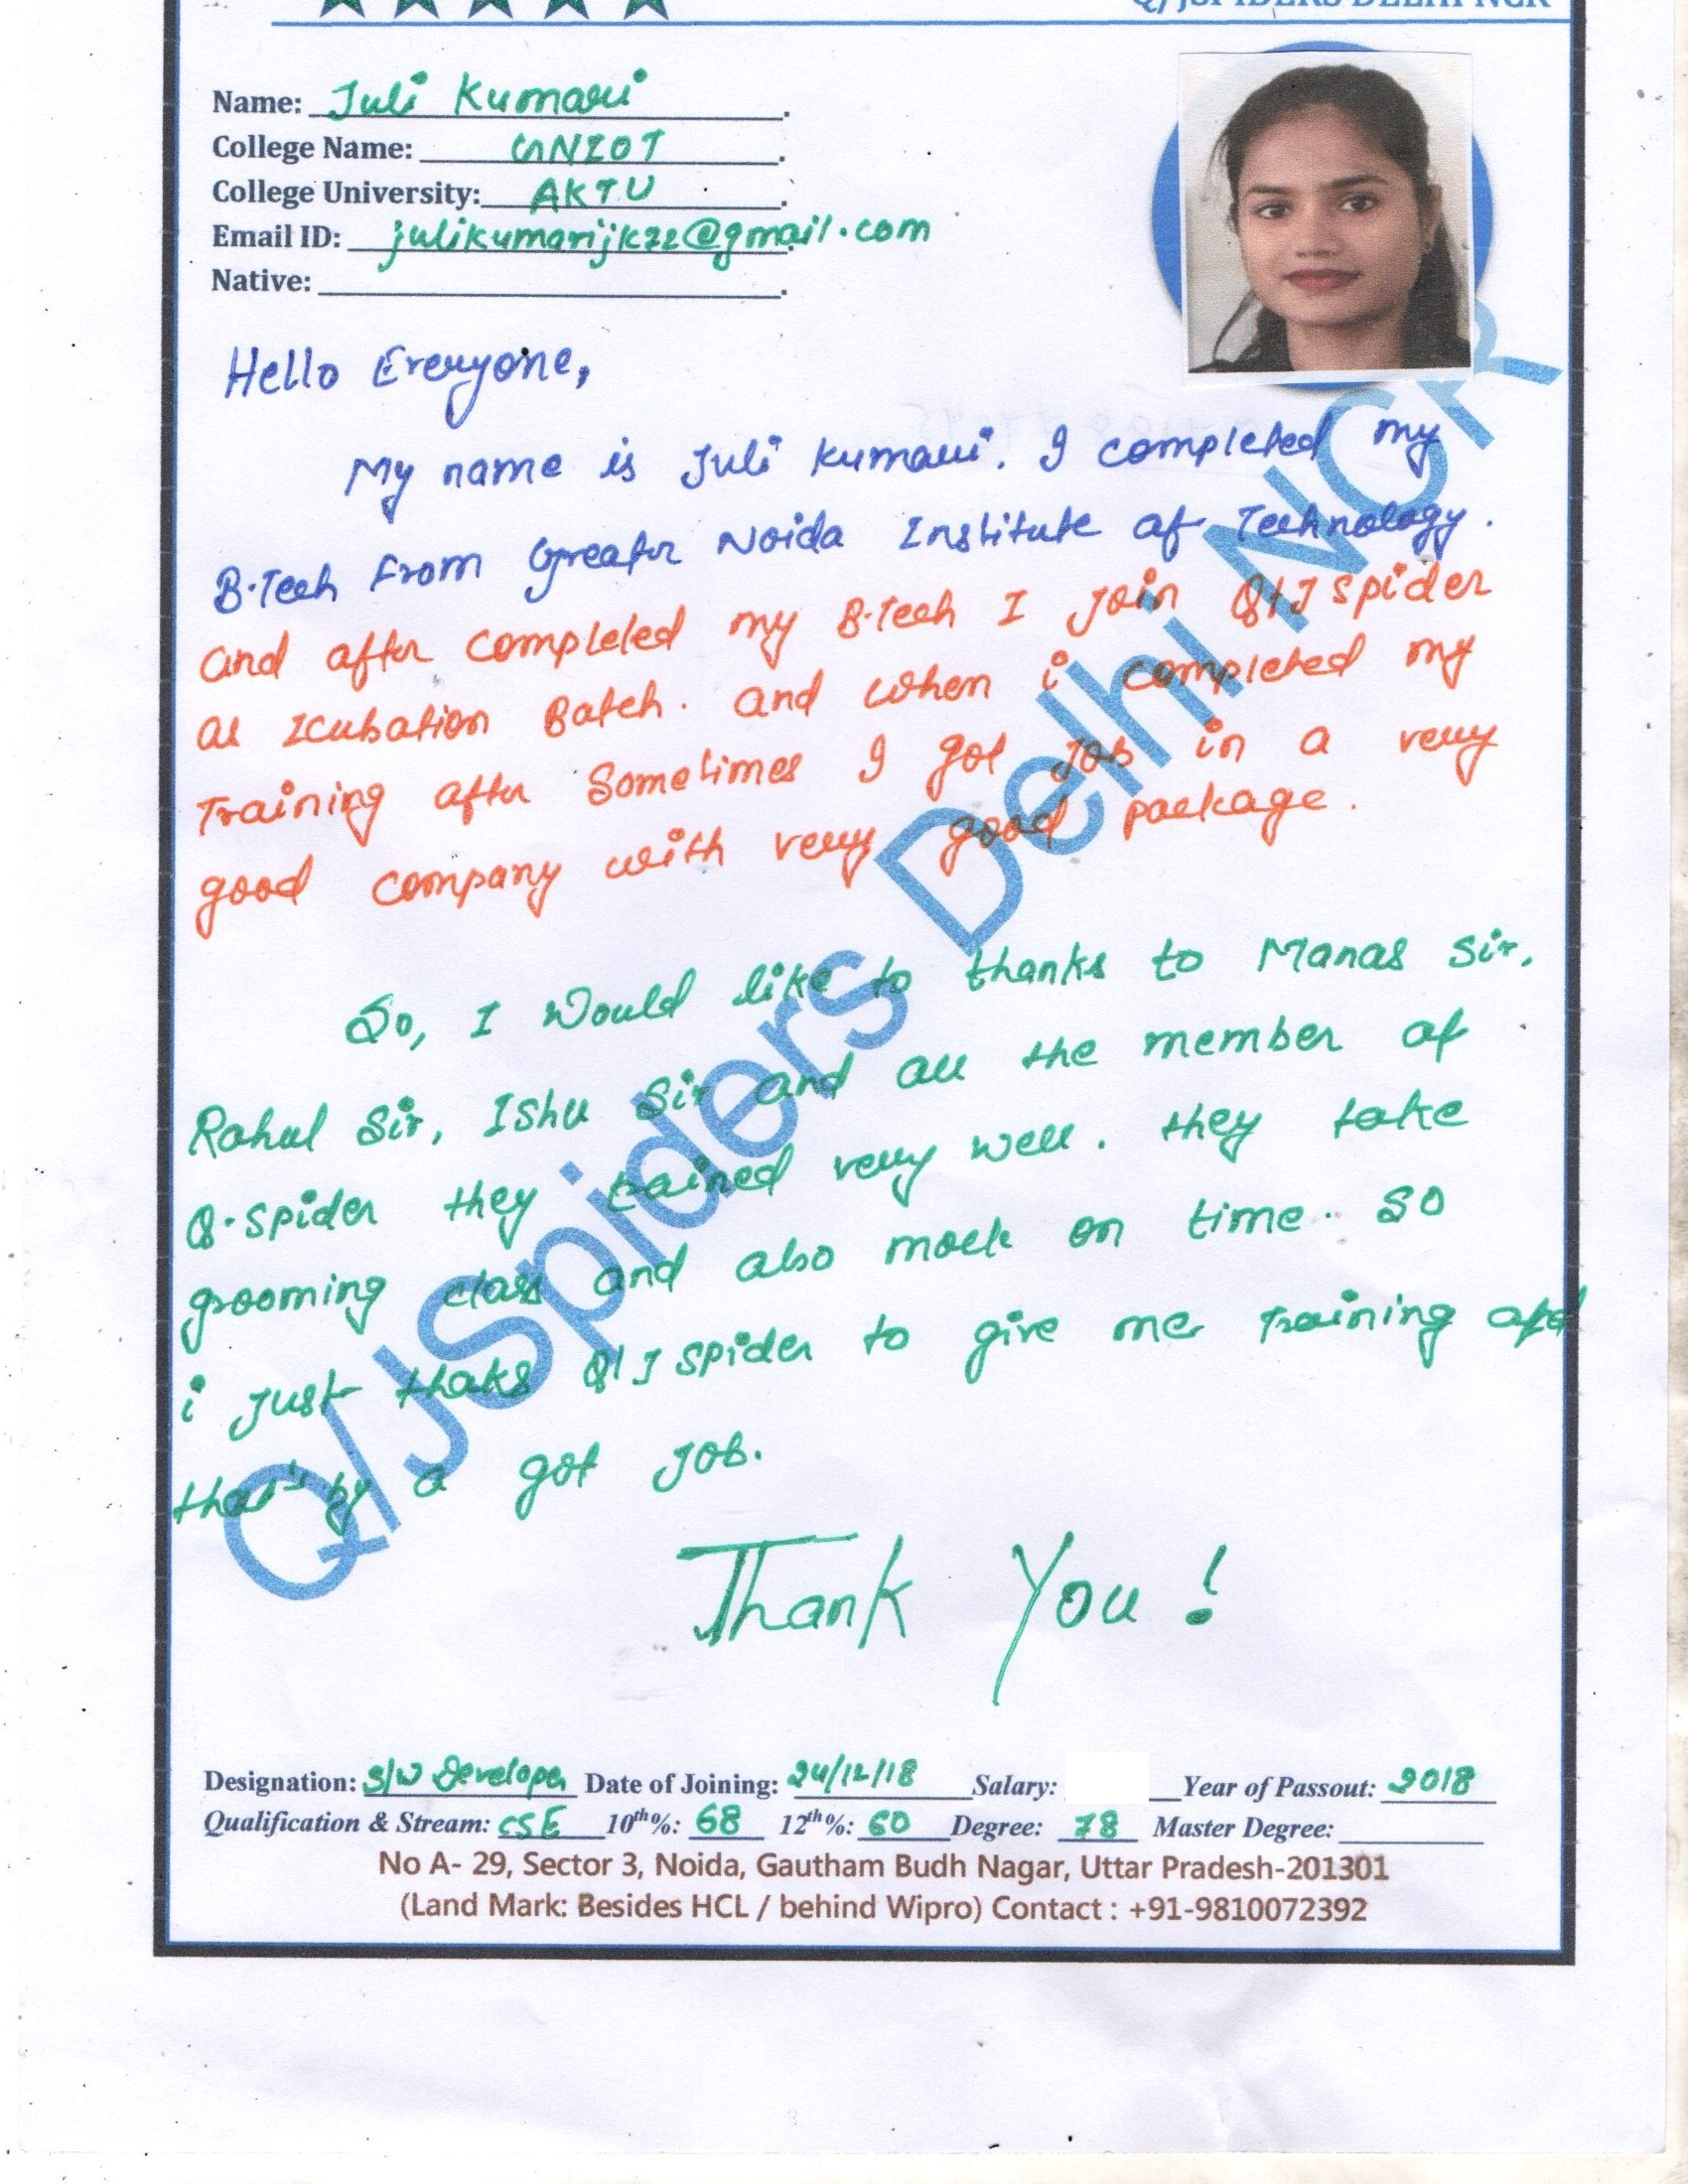 Q/JSPIDERS DELHI NCR
Name: Juli Kumari
College Name: GNIOT
College University: AKTU
Email ID: julikumarijk22@gmail.com
Native:
Hello Everyone,
My name is Juli Kumari. I completed my
B.Tech From Greater Noida Institute of Technology.
and after completed my B.Tech I join Q/J spider
as Icubation Batch. and when i completed my
Training after Sometimes I got Job in a very
good company with very good package.
So, I would like to thanks to Manas Sir,
Rahul Sir, Ishu Sir and all the member of
Q.spider they trained very well. they take
grooming class and also mock on time. SO
i just thaks Q/J spider to give me training and
that's by a got Job.
Thank You!
Q/JSpiders Delhi NCR
Designation: S/W Developer Date of Joining: 24/12/18 Salary: Year of Passout: 2018
Qualification & Stream: CSE 10th%: 68 12th%: 60 Degree: 78 Master Degree:
No A- 29, Sector 3, Noida, Gautham Budh Nagar, Uttar Pradesh-201301
(Land Mark: Besides HCL / behind Wipro) Contact : +91-9810072392